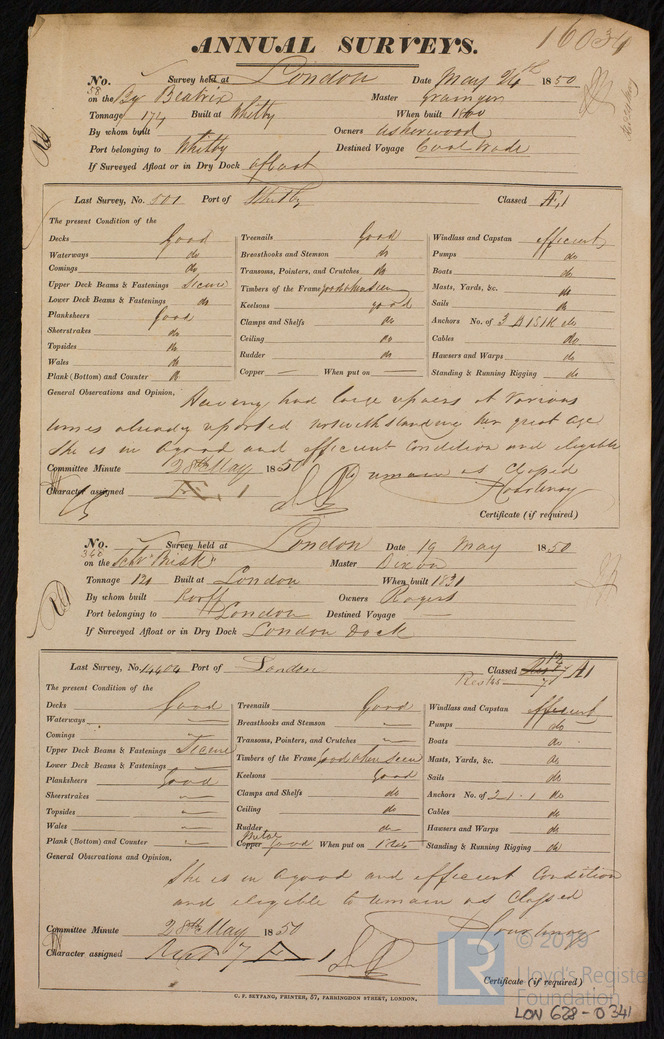 ANNUAL SURVEYS.
16034
No. 58 Survey held at London Date May 24th 1850
on the Bg Beatrix Master Grainger
Tonnage 174 Built at Whitby When built 1800
By whom built Owners Usherwood
Port belonging to Whitby Destined Voyage Coal trade
If Surveyed Afloat or in Dry Dock afloat
Last Survey, No. 501 Port of Whitby Classed Æ1
The present Condition of the
Decks Good Treenails Good Windlass and Capstan efficient
Waterways do Breasthooks and Stemson do Pumps do
Comings do Transoms, Pointers, and Crutches do Boats do
Upper Deck Beams & Fastenings Secure Timbers of the Frame good when seen Masts, Yards, &c. do
Lower Deck Beams & Fastenings do Keelsons good Sails do
Planksheers good Clamps and Shelfs do Anchors No. of 3 B 1 S 1 K do
Sheerstrakes do Ceiling do Cables do
Topsides do Rudder do Hawsers and Warps do
Wales do Copper — When put on — Standing & Running Rigging do
Plank (Bottom) and Counter do
General Observations and Opinion, Having had large repairs at various
times already reported notwithstanding her great age
She is in a good and efficient Condition and eligible
to remain as Classed
Committee Minute 28th May 1850
Character assigned Æ 1
Courtenay
Certificate (if required)
No. 360 Survey held at London Date 19 May 1850
on the Schr "Brisk" Master Dixon
Tonnage 121 Built at London When built 1831
By whom built Owners Rogers
Port belonging to London Destined Voyage —
If Surveyed Afloat or in Dry Dock London Dock
Last Survey, No. 14404 Port of London Classed A1
The present Condition of the
Decks Good Treenails Good Windlass and Capstan efficient
Waterways — Breasthooks and Stemson — Pumps do
Comings — Transoms, Pointers, and Crutches — Boats do
Upper Deck Beams & Fastenings Secure Timbers of the Frame good when seen Masts, Yards, &c. do
Lower Deck Beams & Fastenings Keelsons Good Sails do
Planksheers Good Clamps and Shelfs do Anchors No. of 2-1-1 do
Sheerstrakes — Ceiling do Cables do
Topsides — Rudder do Hawsers and Warps do
Wales — Copper good When put on Standing & Running Rigging do
Plank (Bottom) and Counter —
General Observations and Opinion,
She is in a good and efficient Condition
and eligible to remain as Classed
Courtenay
Committee Minute 28th May 1850
Character assigned 7 A 1
Certificate (if required)
C. F. SEYFANG, PRINTER, 57, FARRINGDON STREET, LONDON,
LR © 2019
Lloyd's Register
Foundation
LON 628-0341